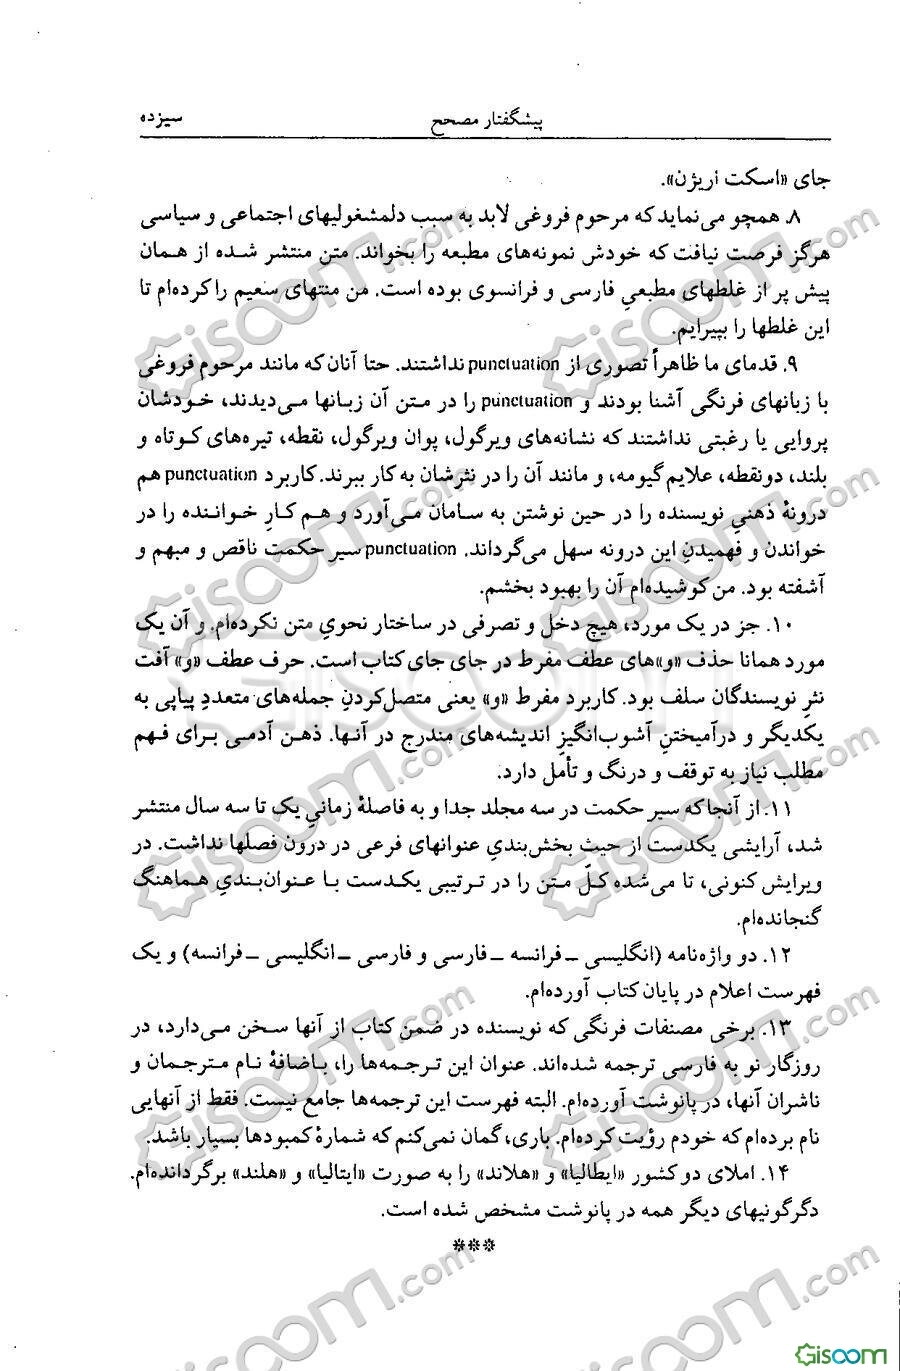 پیشگفتار مصحح
سیزده
جای «اسکت اریژن».
۸. همچو می‌نماید که مرحوم فروغی لابد به سبب دلمشغولیهای اجتماعی و سیاسی
هرگز فرصت نیافت که خودش نمونه‌های مطبعه را بخواند. متن منتشر شده از همان
پیش پر از غلطهای مطبعیِ فارسی و فرانسوی بوده است. من منتهای سعیم را کرده‌ام تا
این غلطها را بپیرایم.
۹. قدمای ما ظاهراً تصوری از punctuation نداشتند. حتا آنان که مانند مرحوم فروغی
با زبانهای فرنگی آشنا بودند و punctuation را در متن آن زبانها می‌دیدند، خودشان
پروایی یا رغبتی نداشتند که نشانه‌های ویرگول، پوان ویرگول، نقطه، تیره‌های کوتاه و
بلند، دونقطه، علایم گیومه، و مانند آن را در نثرشان به کار ببرند. کاربرد punctuation هم
درونهٔ ذهنیِ نویسنده را در حین نوشتن به سامان می‌آورد و هم کارِ خواننده را در
خواندن و فهمیدنِ این درونه سهل می‌گرداند. punctuation سیر حکمت ناقص و مبهم و
آشفته بود. من کوشیده‌ام آن را بهبود بخشم.
۱۰. جز در یک مورد، هیچ دخل و تصرفی در ساختار نحویِ متن نکرده‌ام. و آن یک
مورد همانا حذف «و»های عطف مفرط در جای جای کتاب است. حرف عطف «و» آفت
نثرِ نویسندگان سلف بود. کاربرد مفرط «و» یعنی متصل‌کردنِ جمله‌های متعددِ پیاپی به
یکدیگر و درآمیختنِ آشوب‌انگیزِ اندیشه‌های مندرج در آنها. ذهن آدمی برای فهم
مطلب نیاز به توقف و درنگ و تأمل دارد.
۱۱. از آنجاکه سیر حکمت در سه مجلد جدا و به فاصلهٔ زمانیِ یک تا سه سال منتشر
شد، آرایشی یکدست از حیثِ بخش‌بندیِ عنوانهای فرعی در درون فصلها نداشت. در
ویرایش کنونی، تا می‌شده کلّ متن را در ترتیبی یکدست با عنوان‌بندیِ هماهنگ
گنجانده‌ام.
۱۲. دو واژه‌نامه (انگلیسی ـ فرانسه ـ فارسی و فارسی ـ انگلیسی ـ فرانسه) و یک
فهرست اعلام در پایان کتاب آورده‌ام.
۱۳. برخی مصنفات فرنگی که نویسنده در ضمن کتاب از آنها سخن می‌دارد، در
روزگار نو به فارسی ترجمه شده‌اند. عنوان این ترجمه‌ها را، باضافهٔ نام مترجمان و
ناشران آنها، در پانوشت آورده‌ام. البته فهرست این ترجمه‌ها جامع نیست. فقط از آنهایی
نام برده‌ام که خودم رؤیت کرده‌ام. باری، گمان نمی‌کنم که شمارهٔ کمبودها بسیار باشد.
۱۴. املای دو کشور «ایطالیا» و «هلاند» را به صورت «ایتالیا» و «هلند» برگردانده‌ام.
دگرگونیهای دیگر همه در پانوشت مشخص شده است.
***
Gisoom
Gisoom.com